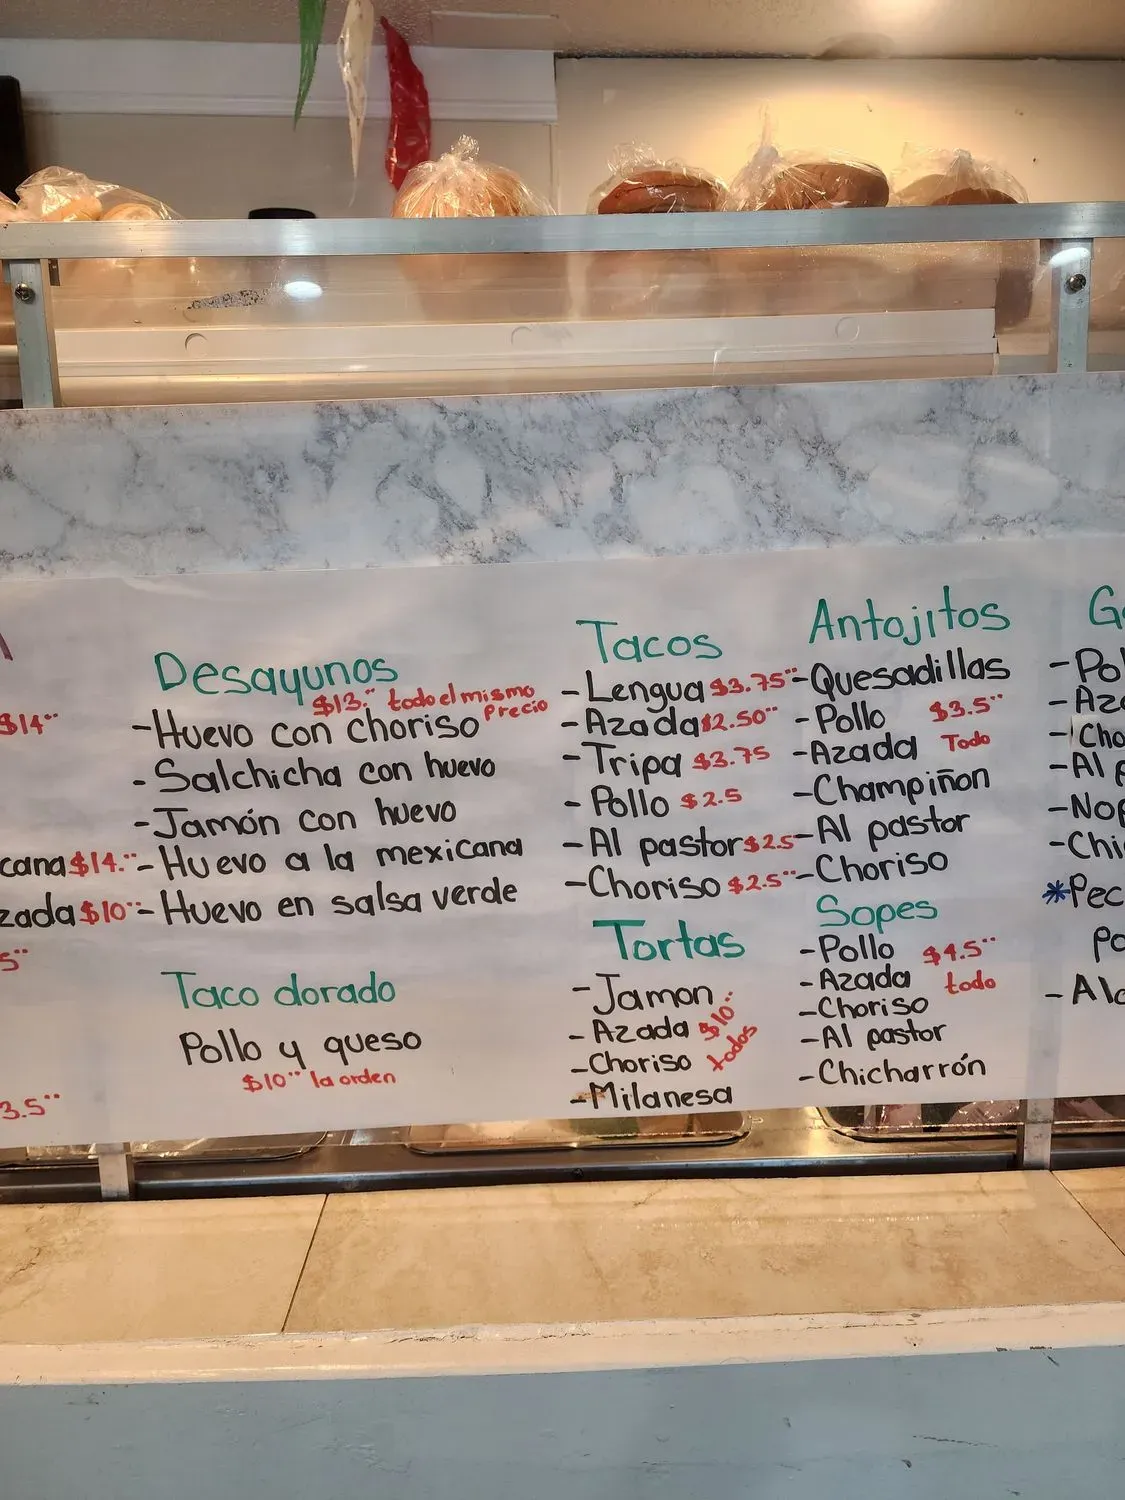 $14¨
cana $14.¨
zada $10¨
5¨
3.5¨
Desayunos
$13.¨ todo el mismo
Precio
-Huevo con choriso
-Salchicha con huevo
-Jamón con huevo
-Huevo a la mexicana
-Huevo en salsa verde
Taco dorado
Pollo y queso
$10¨ la orden
Tacos
-Lengua $3.75¨
-Azada $2.50¨
-Tripa $3.75
-Pollo $2.5
-Al pastor $2.5
-Choriso $2.5¨
Tortas
-Jamon
-Azada $10¨
-Choriso todos
-Milanesa
Antojitos
-Quesadillas
-Pollo $3.5¨
-Azada Todo
-Champiñon
-Al pastor
-Choriso
Sopes
-Pollo $4.5¨
-Azada todo
-Choriso
-Al pastor
-Chicharrón
G
-Pol
-Aza
-Cho
-Al p
-Nop
-Chi
*Pec
po
-Al